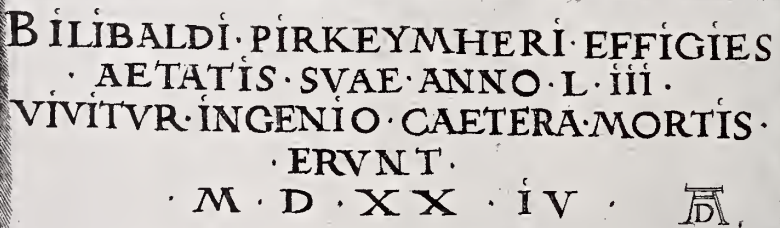 BiLiBALDi·PiRKEYMHERi·EFFiGiES
·AETATiS·SVAE·ANNO·L·iii·
ViViTVR·iNGENiO·CAETERA·MORTiS·
·ERVNT·
·M·D·XX·iV·
AD